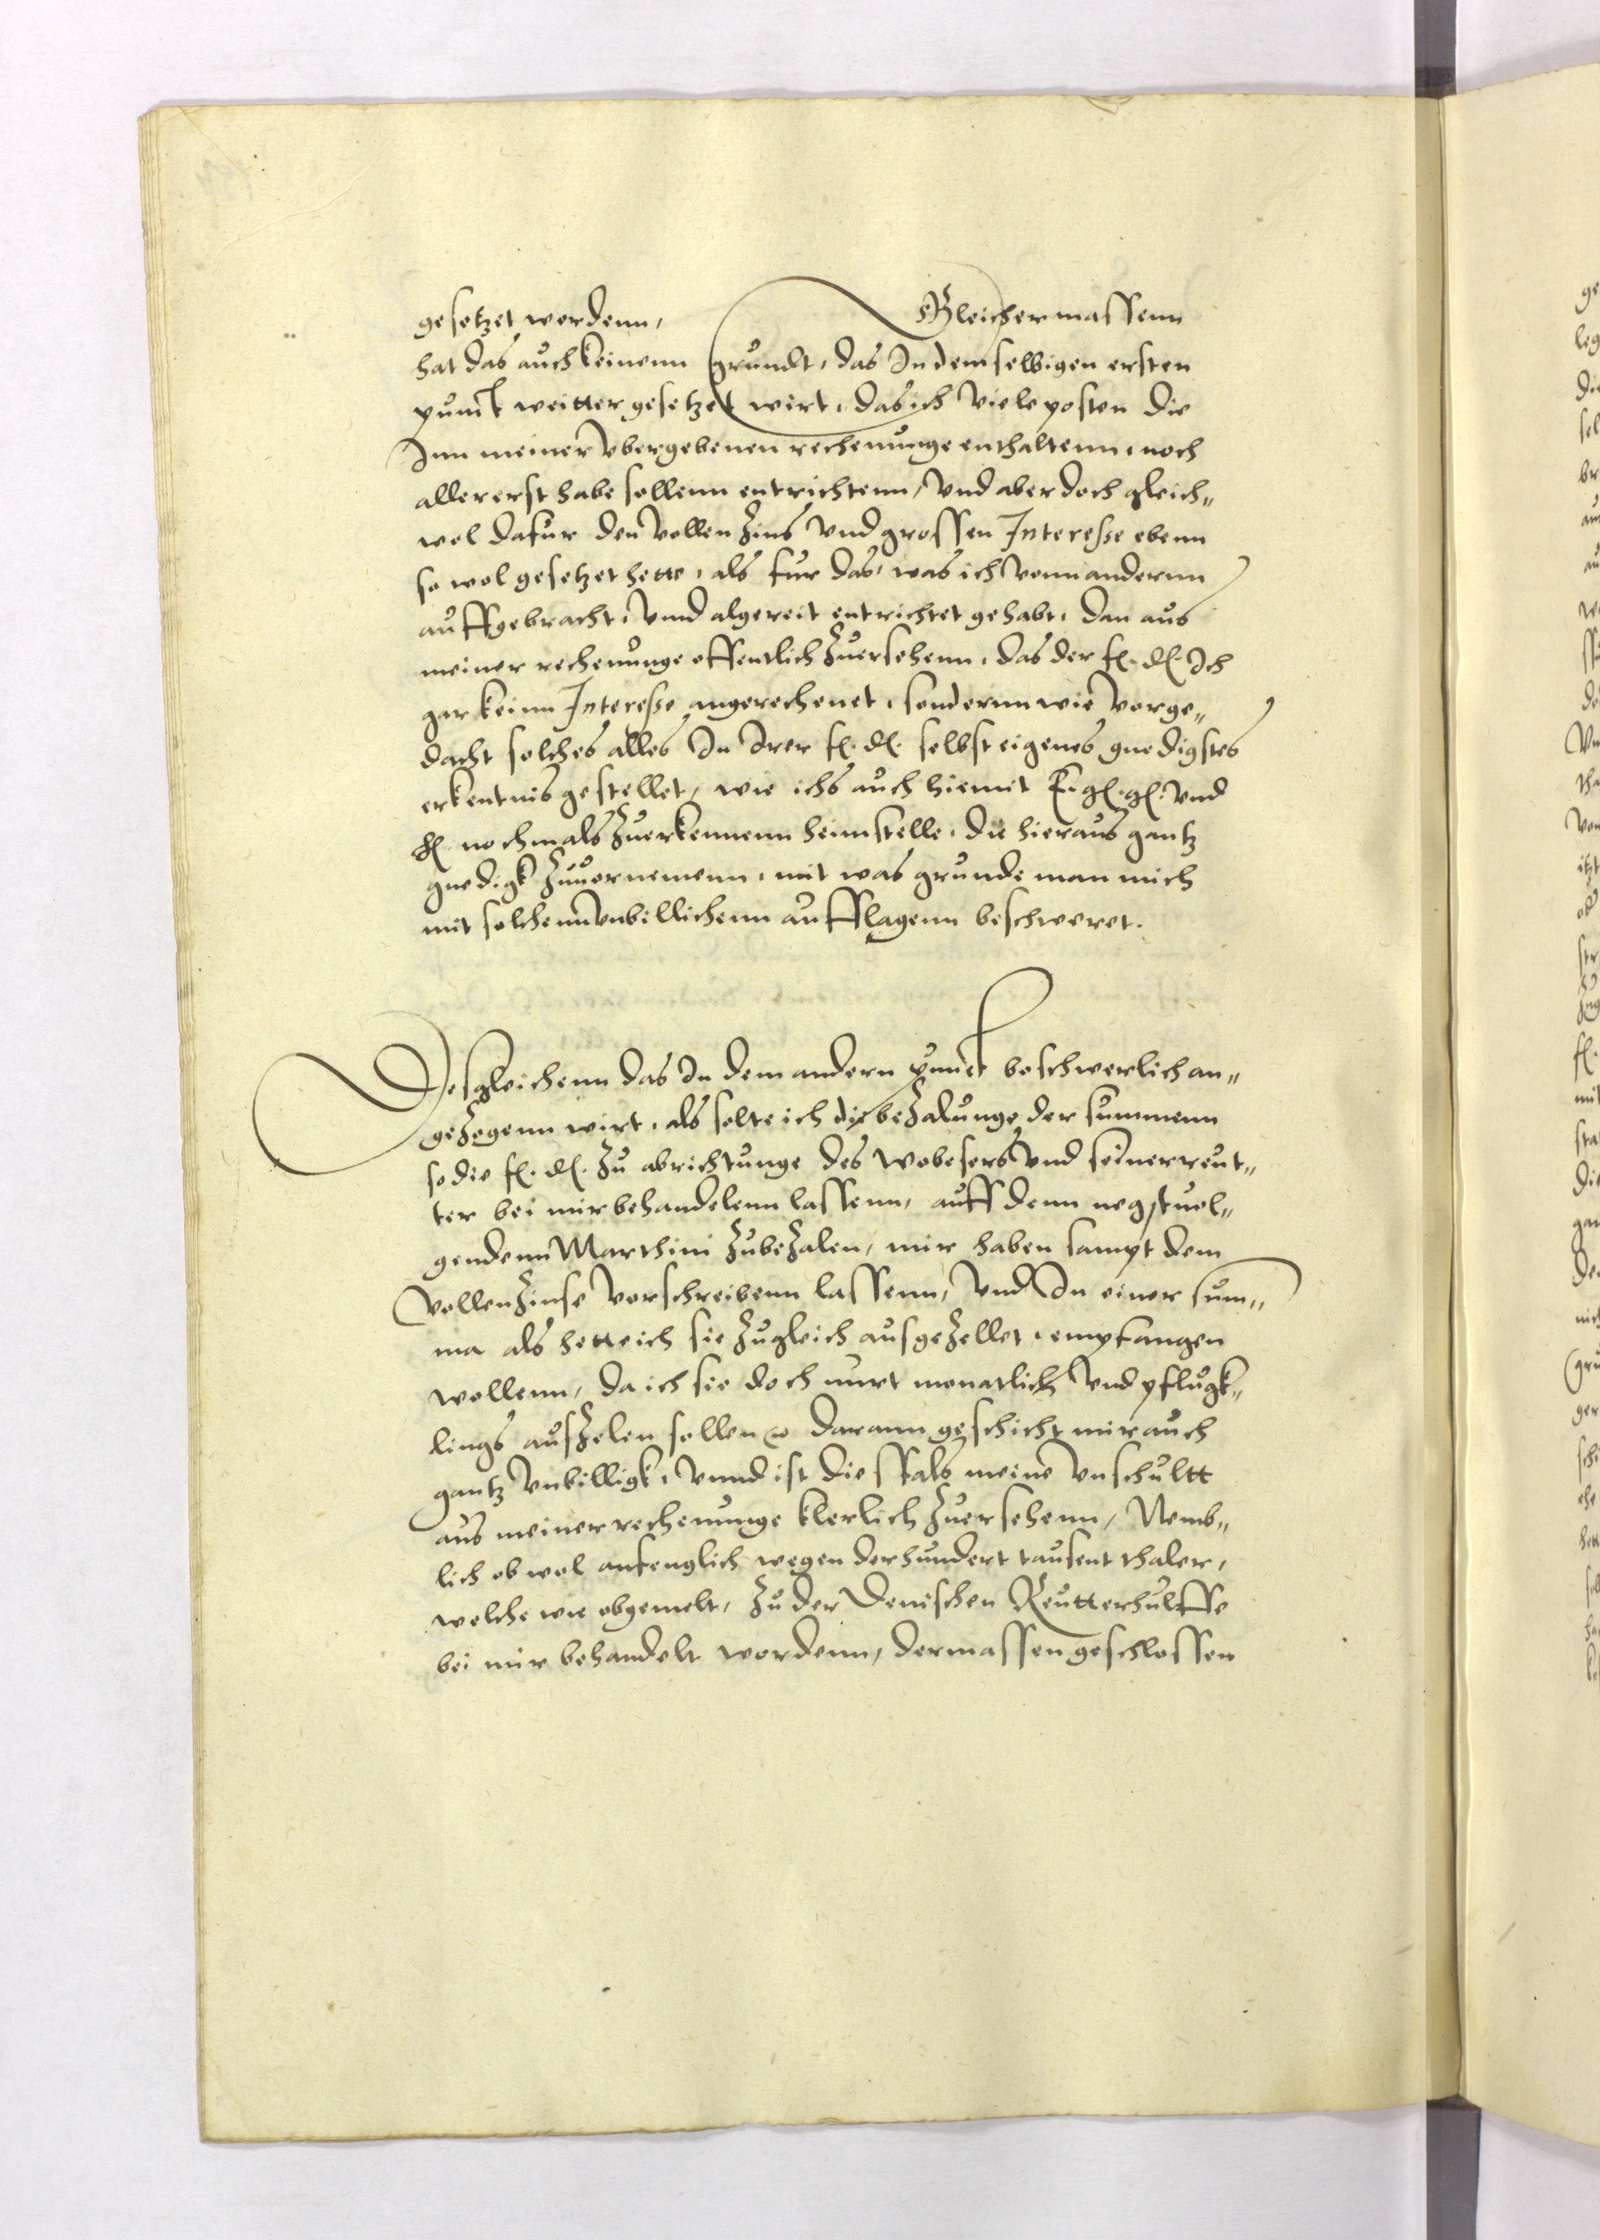 gesetzet werdenn, Gleichermassenn
hat das auch keinenn grundt, das In demselbigen ersten
punct weitter gesetzet wirt, das ich viele posten die
Inn meiner vbergebenen rechenunge enthaltenn, noch
allererst habe sollenn entrichtenn, vnd aber doch gleich„
wol dafur den vollen zins vnd grossen Interesse ebenn
so wol gesetzet hette, als fur das, was ich vonn anderenn
auffgebracht, vnnd algereit entrichtet gehabt, dan aus
meiner rechenunge offentlich zuersehenn, das der f. d. Ich
gar keinn Interesse angerechenet, sondernn wie vorge„
dacht solches alles In Irer f. d. selbst eigenes gnedigstes
erkentnis gestellet, wie ichs auch hiemit E. g. g. vnd
h. nochmals zuerkennenn heimstelle, die hieraus gantz
gnedigk zuuornemenn, mit was grunde man mich
mit solchenn vnbillichenn aufflagenn beschweret.
Desgleichenn das In dem andern punct beschwerlich an„
gezogenn wirt, als solte ich die bezalunge der summenn
so die f. d. zu abrichtunge des Wobesers vnd seiner reut„
ter bei mir behandelenn lassenn, auff denn negstuol„
gendenn Marthini zubezalen, mir haben sampt dem
vollen zinse vorschreibenn lassenn, vnd In einer sum„
ma als hette ich sie zugleich ausgezellet, empfangen
wollenn, da ich sie doch nurt monatlich vnd pflugk„
lings auszelen sollen, darann geschicht mir auch
gantz vnbilligk, vnnd ist diesfals meine vnschultt
aus meiner rechenunge klerlich zuersehenn, Nemb„
lich ob wol anfenglich wegen der hundert tausent thaler,
welche wie obgemelt, zu der Denischen Reutterhulffe
bei mir behandelt wordenn, dermassen geschlossen